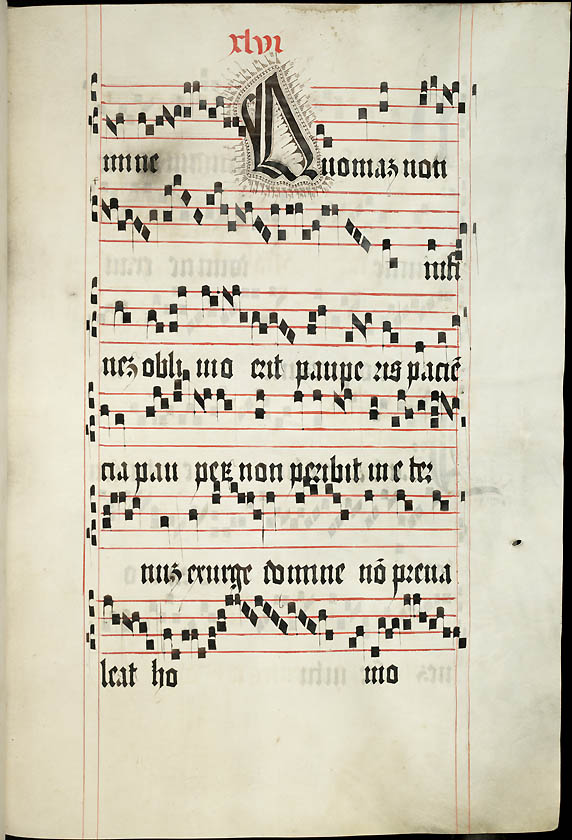 xlvi
mine Quoniaz non
in fi
nez obli uio erit paupe ris paciē
cia pau peꝝ non peribit in e ter
nuz exurge domine nō preua
leat ho mo